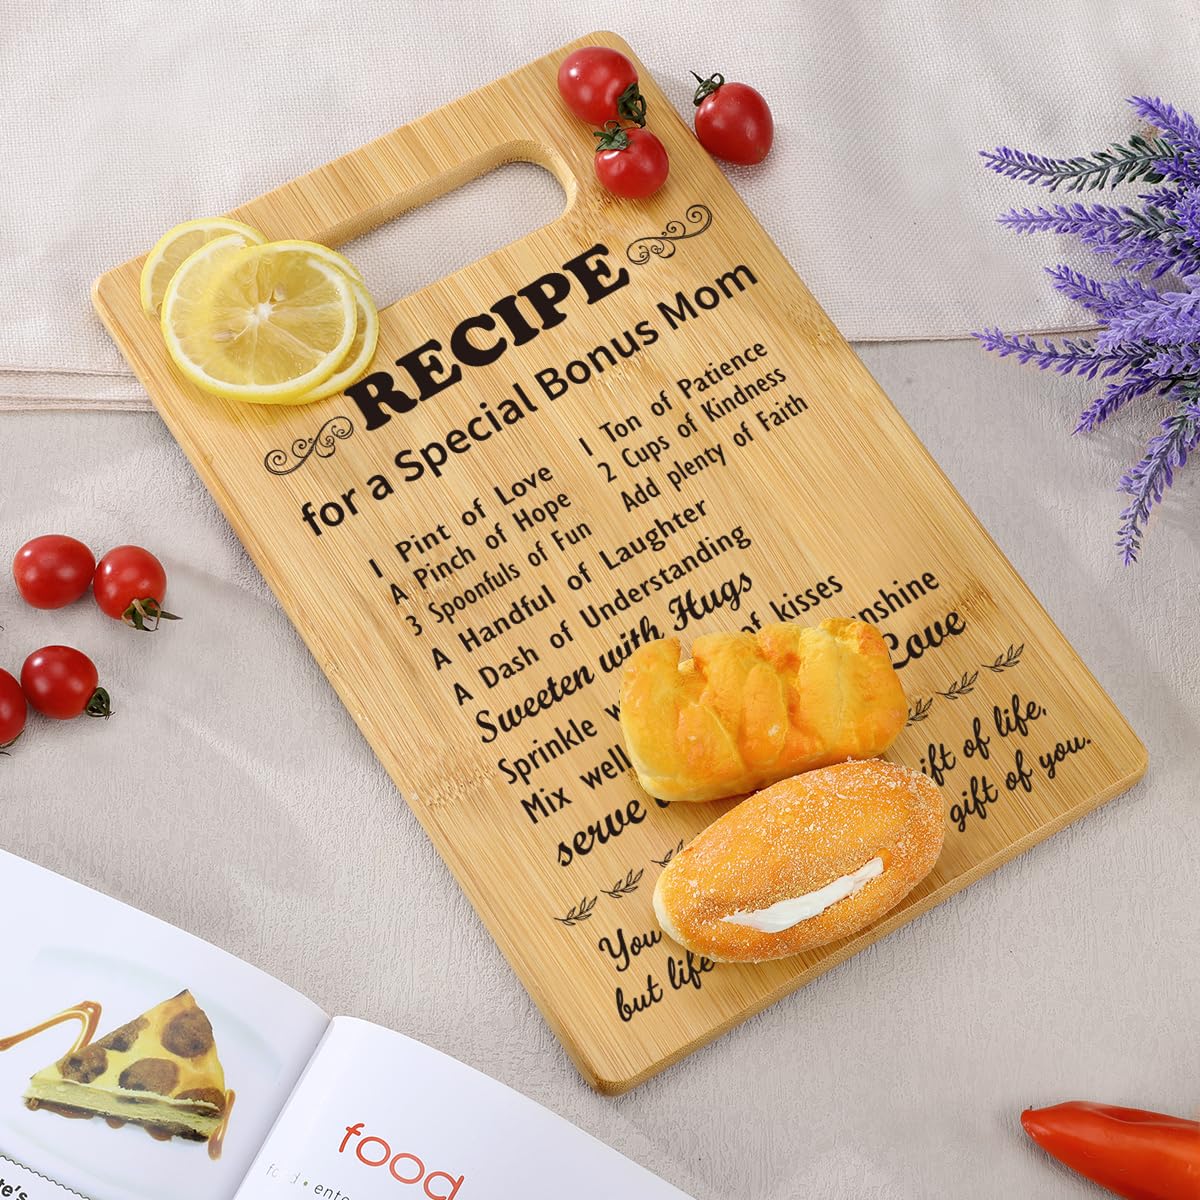 RECIPE
for a Special Bonus Mom
1 Pint of Love
1 Ton of Patience
A Pinch of Hope
2 Cups of Kindness
3 Spoonfuls of Fun
Add plenty of Faith
A Handful of Laughter
A Dash of Understanding
Sweeten with Hugs
Sprinkle of kisses
Mix well
serve Love
You gift of life,
but life gift of you.
food
food • ente